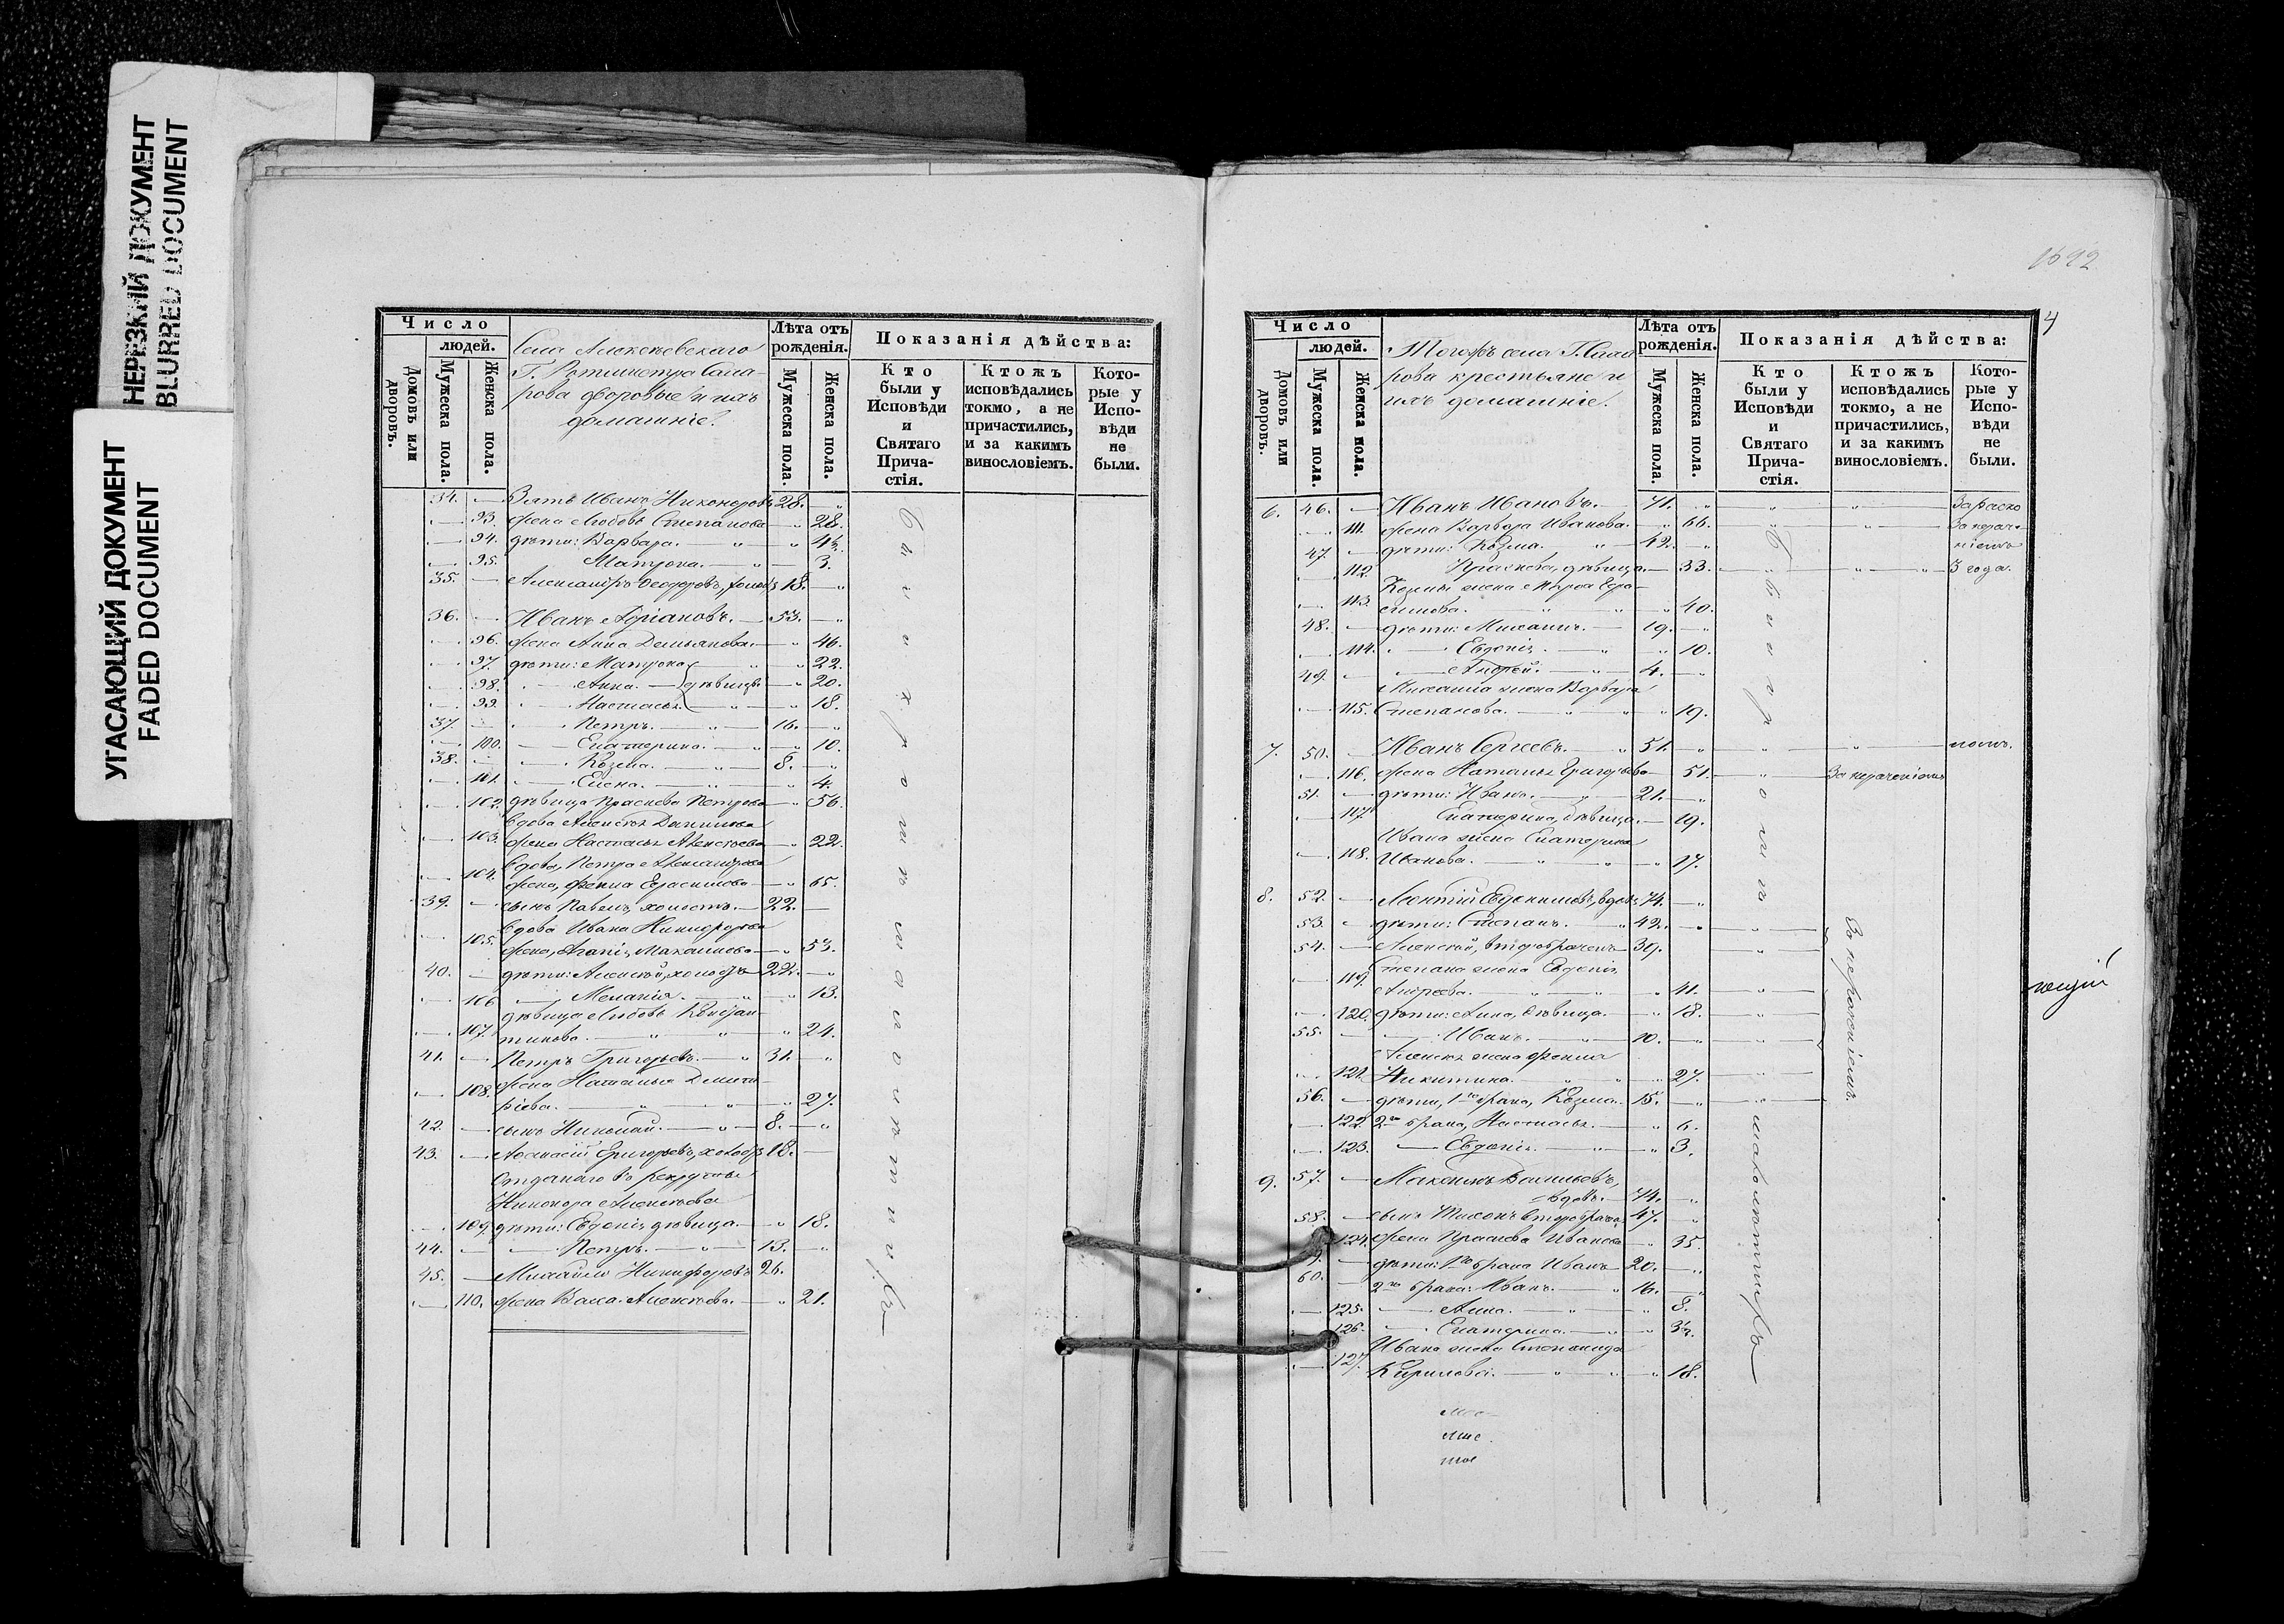 НЕРЕЗКИЙ ДОКУМЕНТ
BLURRED DOCUMENT
УГАСАЮЩИЙ ДОКУМЕНТ
FADED DOCUMENT
Число
людей.
Домовъ или дворовъ.
Мужеска пола.
Женска пола.
Села Алексѣевскаго
Г. Ротмистра Сама-
рова дворовые и ихъ
домашніе.
Лѣта отъ рожденія.
Мужеска пола.
Женска пола.
Показанія дѣйства:
Кто были у Исповѣди и Святаго Прича-стія.
Ктожъ исповѣдались токмо, а не причастились, и за какимъ винословіемъ.
Кото-рые у Испо-вѣди не были.
34. Зять Иванъ Никоноровъ 28.
93. жена Любовь Степанова 28.
94. дѣти: Варвара. 4½
95. Матрона. 3.
35. Александръ Ѳеодоровъ, холостъ 18.
36. Иванъ Адріановъ. 53.
96. жена Анна Демьянова. 46.
97. дѣти: Матрона 22.
98. Анна. дѣвицы 20.
99. Настасья 18.
37. Петръ. 16.
100. Екатерина. 10.
38. Козма. 8.
101. Елена. 4.
102. дѣвица Прасковья Петрова 56.
вдова Алексѣя Данилова
103. жена Настасья Алексѣева 22.
вдова, Петра Александрова
104. жена, Ѳекла Герасимова 65.
39. сынъ Павелъ, холостъ. 22.
вдова Ивана Никифорова
105. жена, Агапія Максимова 53.
40. дѣти: Алексѣй, холостъ 22.
106 Меланія 13.
дѣвица Любовь Констан-
107. тинова. 24.
41. Петръ Григорьевъ. 31.
жена Наталья Димит-
108. ріева. 27.
42. сынъ Николай. 8.
43. Аѳанасій Григорьевъ, холостъ 18.
Отданаго въ рекруты
Никонора Алексѣева
109. дѣти: Евдокія дѣвица. 18.
44. Петръ. 13.
45. Михаилъ Никифоровъ 26.
110. жена Васса Алексѣева. 21.
1692
4
Число
людей.
Домовъ или дворовъ.
Мужеска пола.
Женска пола.
Тогожъ села Г. Сама
рова крестьяне и
ихъ домашніе.
Лѣта отъ рожденія.
Мужеска пола.
Женска пола.
Показанія дѣйства:
Кто были у Исповѣди и Святаго Прича-стія.
Ктожъ исповѣдались токмо, а не причастились, и за какимъ винословіемъ.
Кото-рые у Испо-вѣди не были.
6. 46. Иванъ Ивановъ. 71. За раско
111. жена Варвара Иванова. 66. За нераче-
47. дѣти: Козма. 42. ніемъ
112. Прасковья, дѣвица. 33. 3 года.
Козмы жена Марѳа Гера-
113. симова. 40.
48. дѣти: Михаилъ. 19.
114. Евдокія. 10.
49. Андрей. 4.
Михаила жена Варвара
115. Степанова. 19.
7. 50. Иванъ Сергеевъ. 51. ломъ.
116. жена Наталья Григорьева 51. За нераченіемъ
51. дѣти: Иванъ. 21.
117. Екатерина, дѣвица. 19.
Ивана жена Екатерина
118. Иванова. 17.
8. 52. Леонтій Евдокимовъ, вдовъ 74.
53. дѣти: Степанъ. 42.
54. Алексѣй, второбраченъ 39.
Степана жена Евдокія
119. Андреева. 41.
120. дѣти: Анна, дѣвица. 18.
55. Иванъ. 10.
Алексѣя жена Ѳекла
121. Никитина. 27.
56. дѣти, 1го брака, Козма. 15.
122. 2го брака, Настасья. 6.
123. Евдокія. 3.
За нераченіемъ.
9. 57. Максимъ Васильевъ,
вдовъ. 74.
58. сынъ Тихонъ второбрачн. 47.
124. жена Прасковья Иванова 35.
9. дѣти: 1го брака Иванъ 20.
60. 2го брака: Иванъ. 16.
125. Анна. 8.
126. Екатерина. 3½.
Ивана жена Степанида
127. Кирилова. 18.